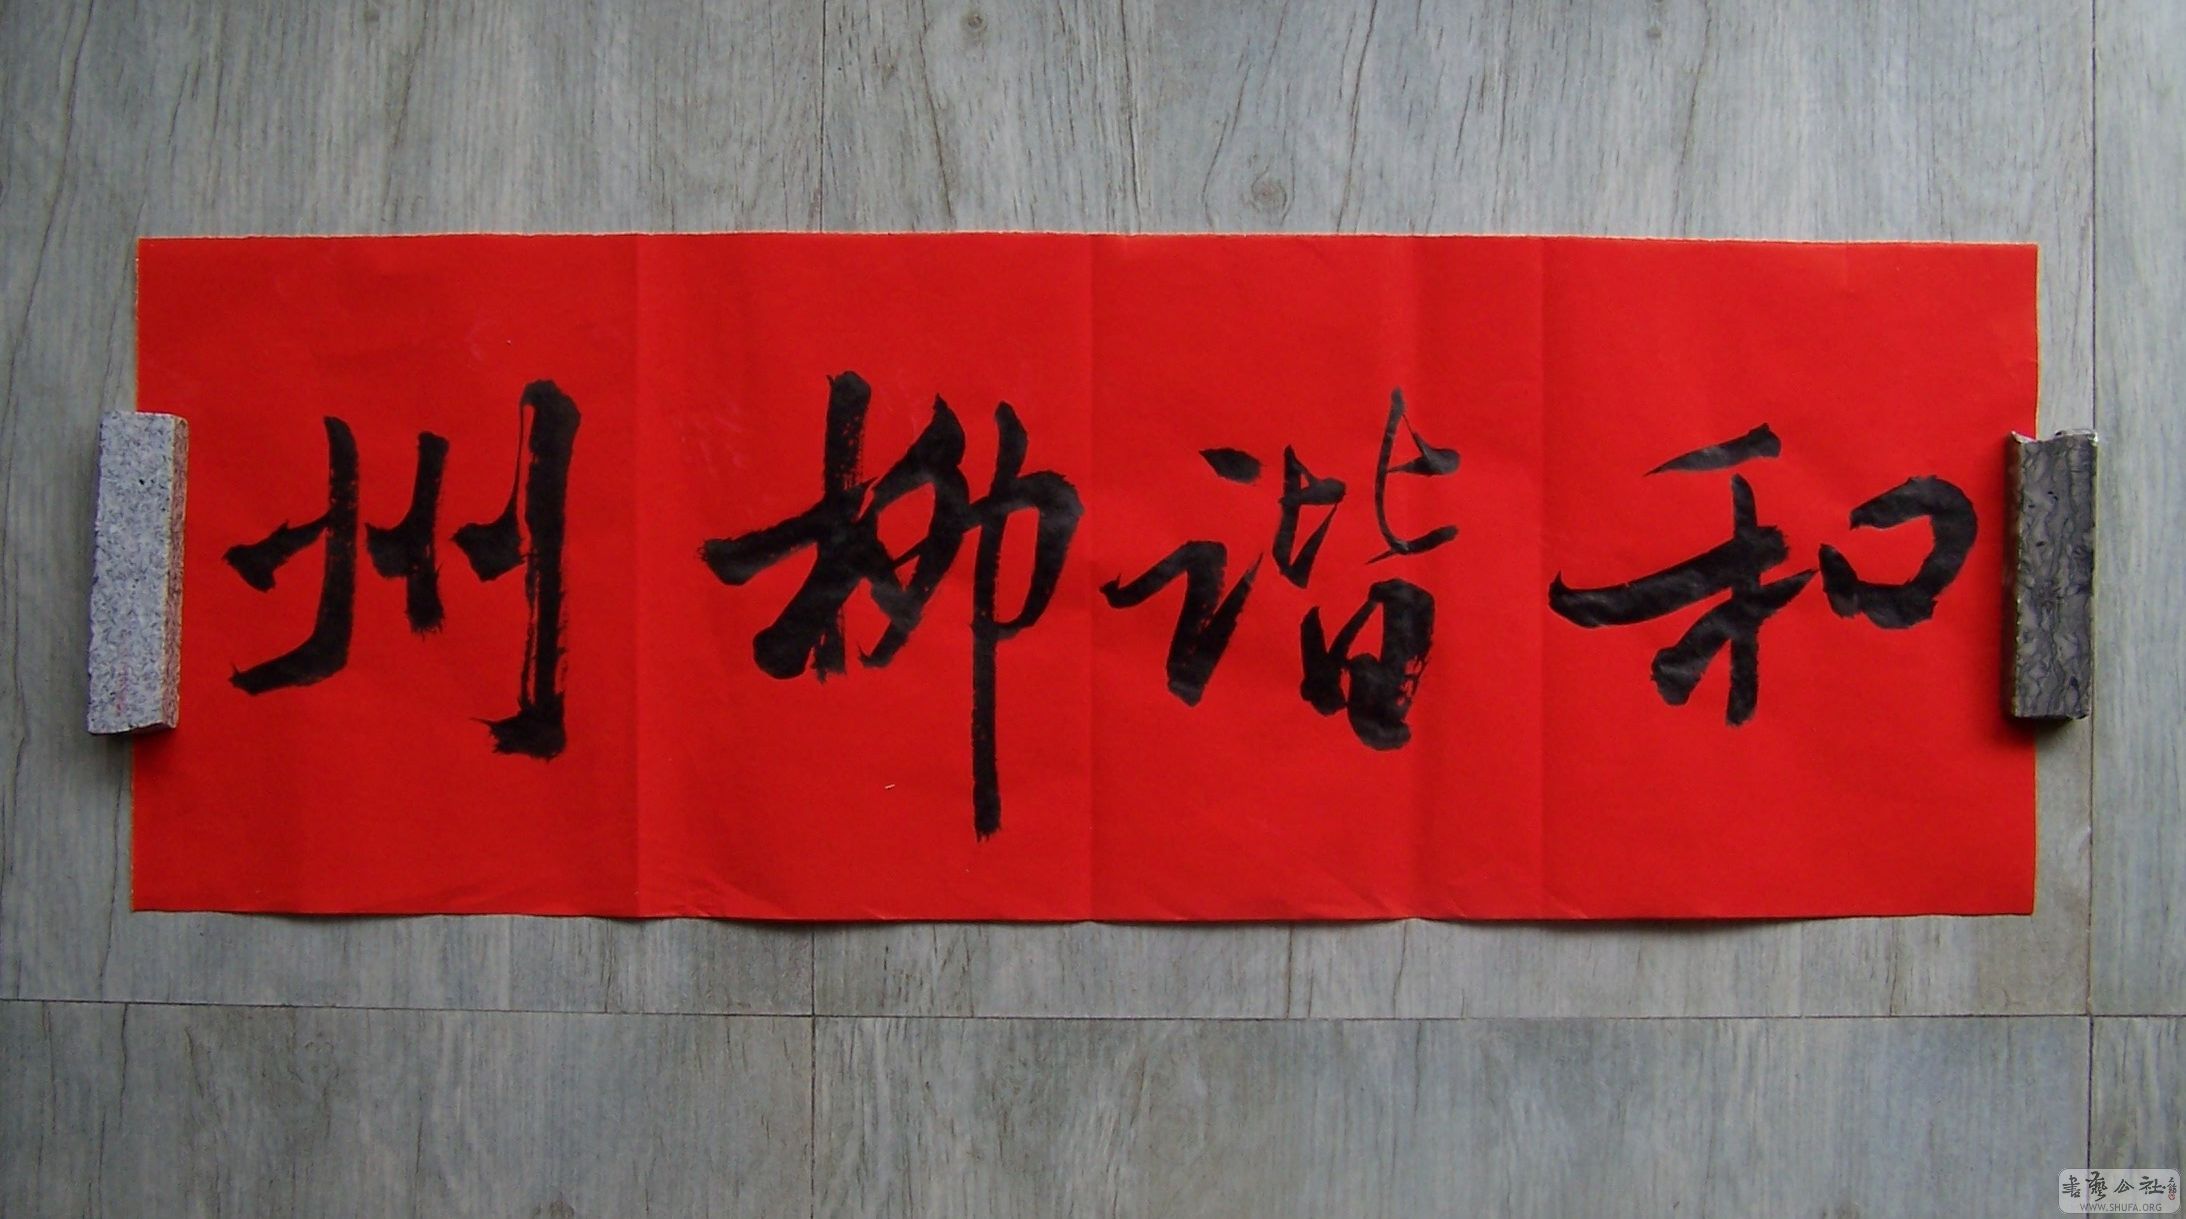 和谐柳州
書藝公社
WWW.SHUFA.ORG